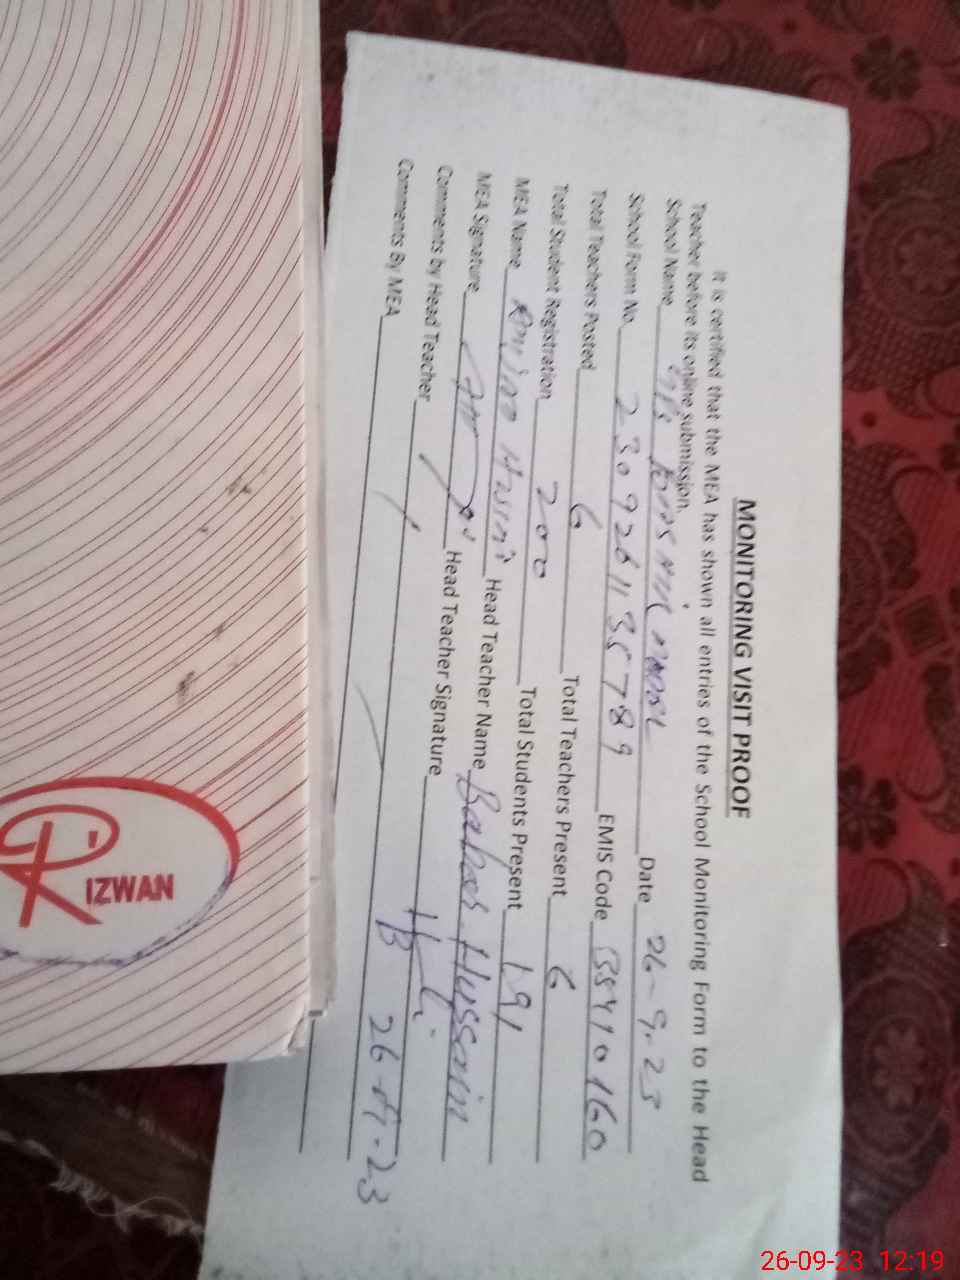 MONITORING VISIT PROOF
It is certified that the MEA has shown all entries of the School Monitoring Form to the Head
Teacher before its online submission.
School Name Date 26-9-23
School Form No. 2309261135789 EMIS Code 38410160
Total Teachers Posted 6 Total Teachers Present 6
Total Student Registration 200 Total Students Present 191
MEA Name Head Teacher Name Hussain
MEA Signature Head Teacher Signature
Comments by Head Teacher
26-09-23
Comments By MEA
RIZWAN
26-09-23 12:19